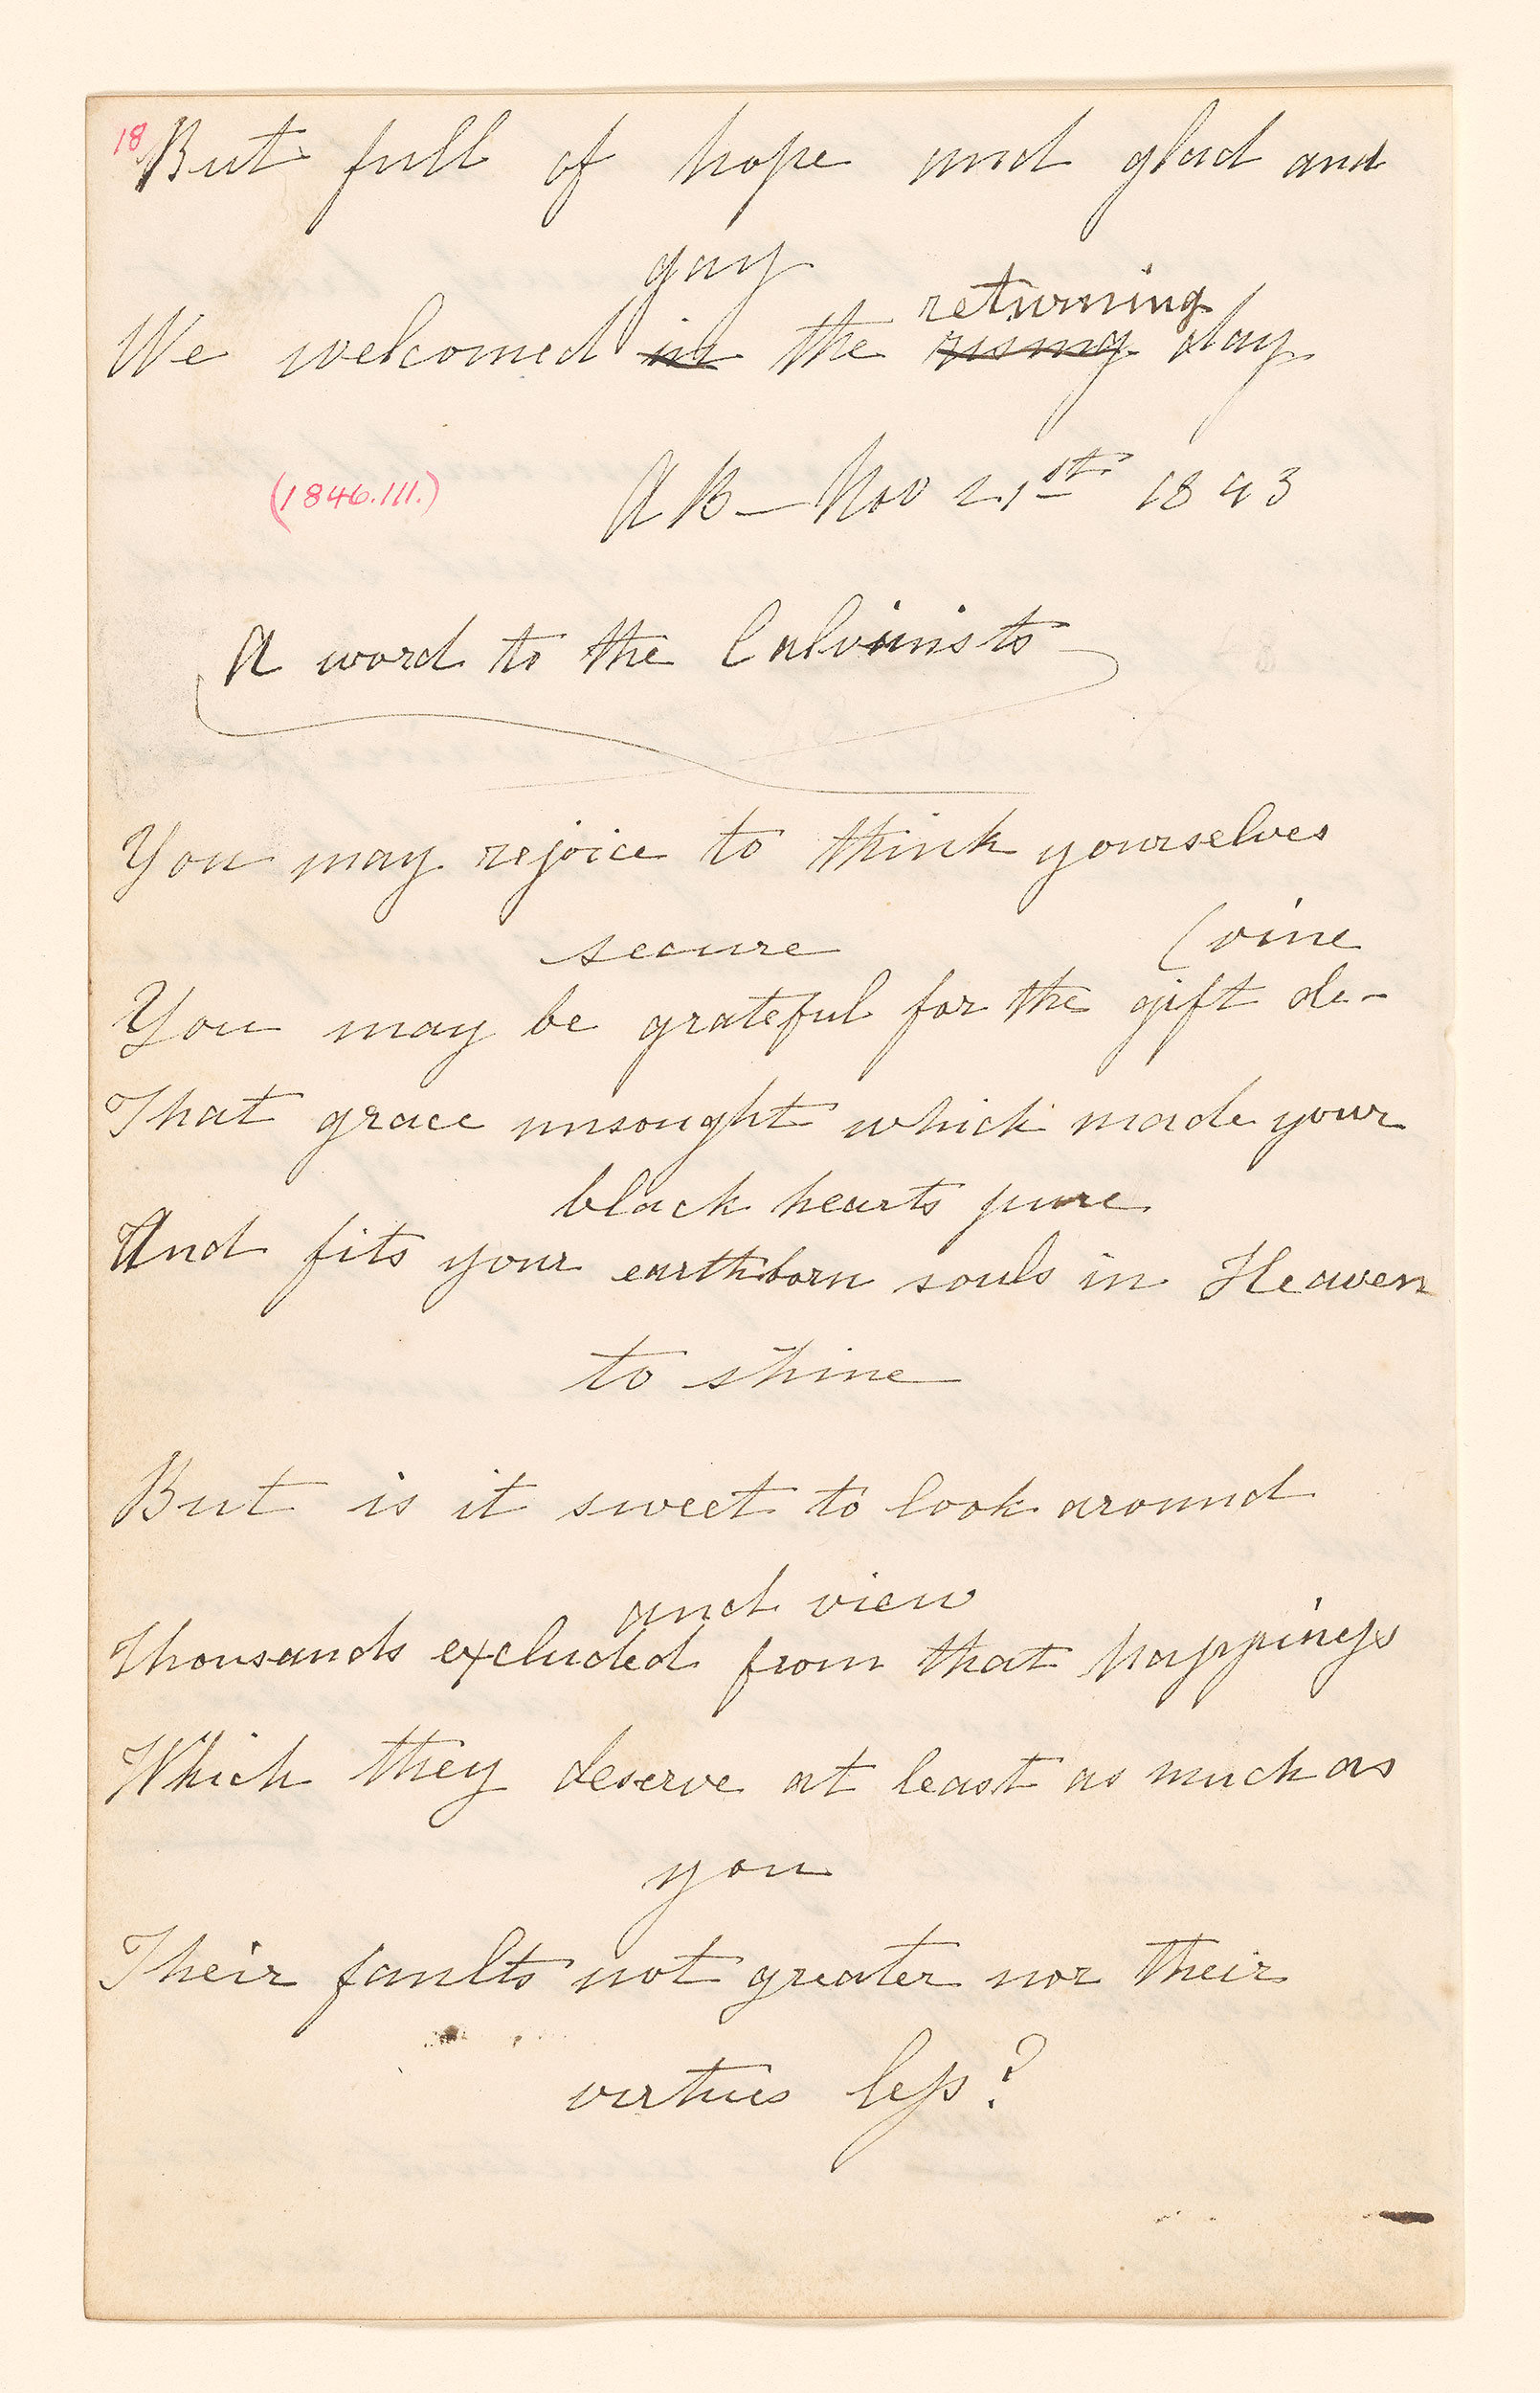 18
But full of hope and glad and
gay
We welcomed in the rising returning day
(1846.III.)
AB — Nov 21st 1843
A word to the Calvinists
You may rejoice to think yourselves
secure
(vine
You may be grateful for the gift de-
That grace unsought which made your
black hearts pure
And fits your earthborn souls in Heaven
to shine
But is it sweet to look around
and view
Thousands excluded from that happiness
Which they deserve at least as much as
you
Their faults not greater nor their
virtues less?